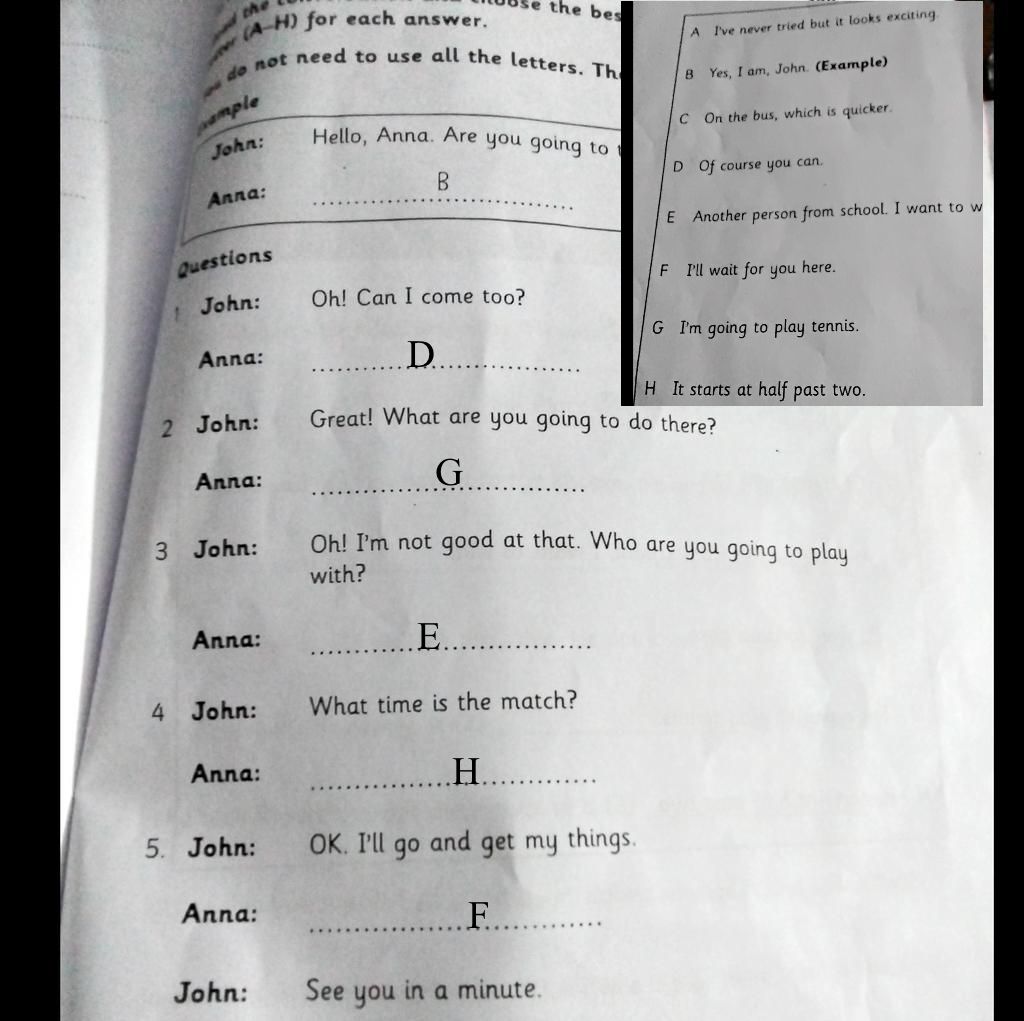 choose the bes
(A–H) for each answer.
do not need to use all the letters. The
John: Hello, Anna. Are you going to
Anna: B
Questions
1 John: Oh! Can I come too?
Anna: D
2 John: Great! What are you going to do there?
Anna: G
3 John: Oh! I'm not good at that. Who are you going to play
with?
Anna: E
4 John: What time is the match?
Anna: H
5. John: OK. I'll go and get my things.
Anna: F
John: See you in a minute.
A I've never tried but it looks exciting.
B Yes, I am, John. (Example)
C On the bus, which is quicker.
D Of course you can.
E Another person from school. I want to w
F I'll wait for you here.
G I'm going to play tennis.
H It starts at half past two.